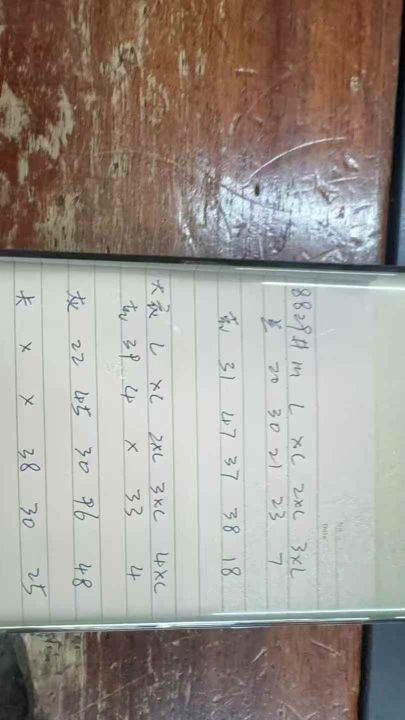 8829# M L XL 2XL 3XL
20 30 21 23 7
31 47 37 38 18
L XL 2XL 3XL 4XL
39 4 x 33 4
22 45 30 76 48
x x 38 30 25